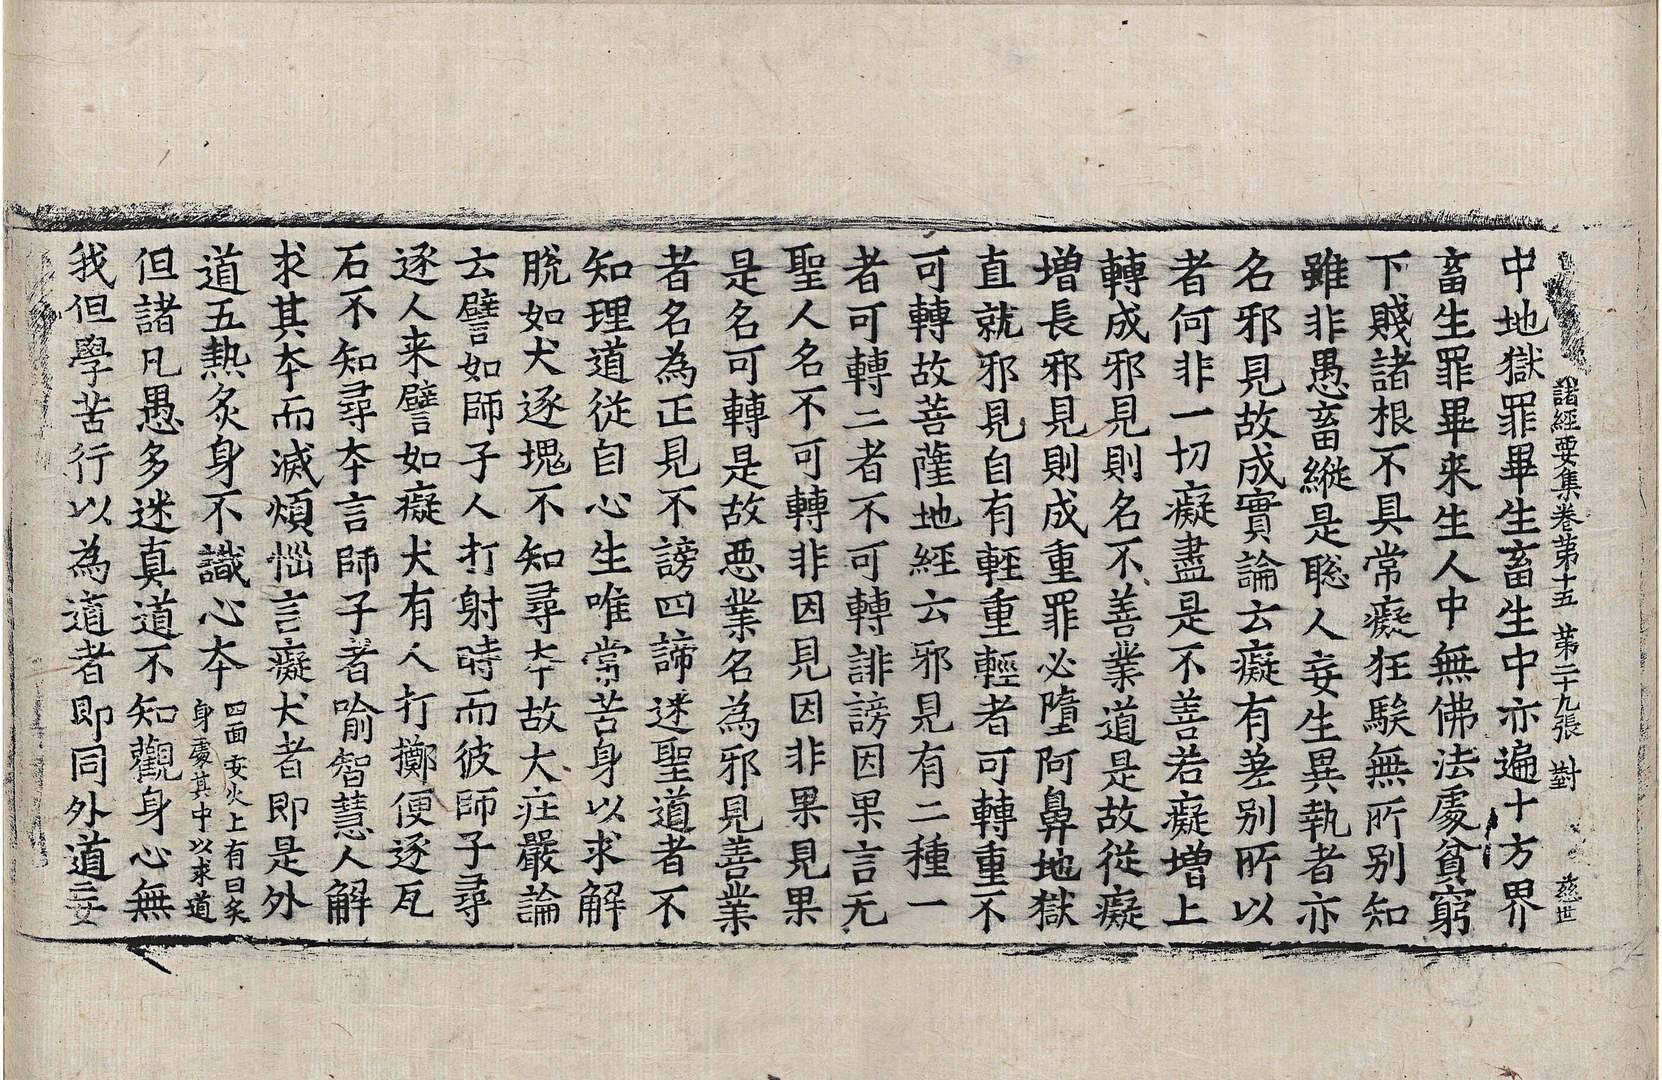 諸經要集卷苐十五　苐二十九張　對　慈世
中地獄罪畢生畜生中亦遍十方界
畜生罪畢来生人中無佛法處貧窮
下賤諸根不具常癡狂騃無所别知
雖非愚畜縱是聡人妄生異執者亦
名邪見故成實論云癡有差别所以
者何非一切癡盡是不善若癡增上
轉成邪見則名不善業道是故從癡
增長邪見則成重罪必墮阿鼻地獄
直就邪見自有輕重輕者可轉重不
可轉故菩薩地經云邪見有二種一
者可轉二者不可轉誹謗因果言无
聖人名不可轉非因見因非果見果
是名可轉是故惡業名為邪見善業
者名為正見不謗四諦迷聖道者不
知理道從自心生唯常苦身以求解
脫如犬逐塊不知尋夲故大莊嚴論
云譬如師子人打射時而彼師子尋
逐人来譬如癡犬有人打擲便逐瓦
石不知尋夲言師子者喻智慧人解
求其夲而滅煩惱言癡犬者即是外
道五熱炙身不識心夲四面安火上有日炙身處其中以求道
但諸凡愚多迷真道不知觀身心無
我但學苦行以為道者即同外道二妄